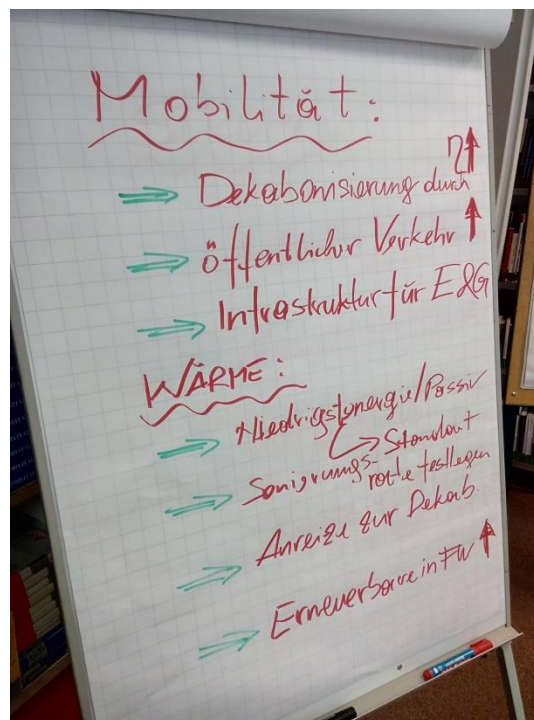 Mobilität:
⇒ Dekabonisierung durch η↑
⇒ öffentlicher Verkehr ↑
⇒ Infrastruktur für E&G
WÄRME:
⇒ Niedrigstenergie/Passiv
→ Standart
⇒ Sanierungs-
rate festlegen
⇒ Anreize zur Dekab.
⇒ Erneuerbare in FW ↑